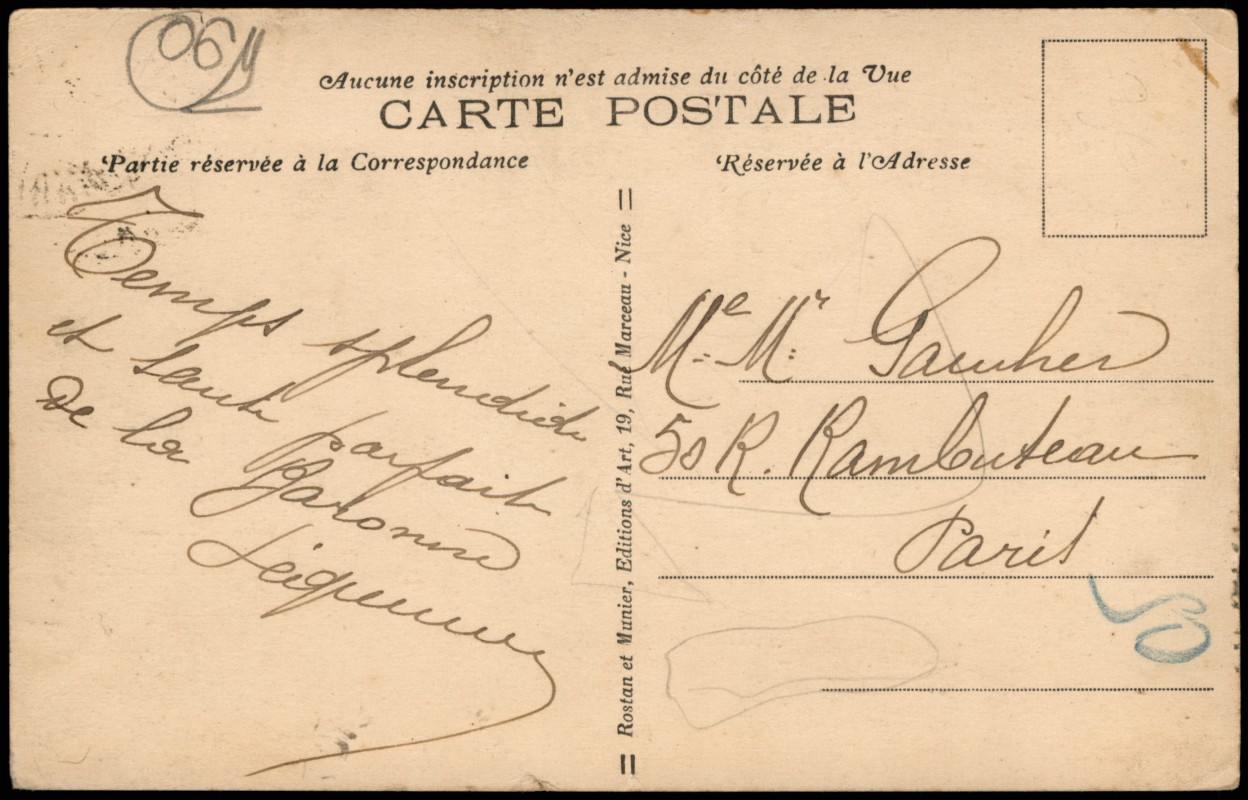 06
Aucune inscription n'est admise du côté de la Vue
CARTE POSTALE
Partie réservée à la Correspondance
Réservée à l'Adresse
Temps splendide
et santé parfaite
De la Baronne
Rostan et Munier, Editions d'Art, 19, Rue Marceau - Nice
Me Mr Gauthier
50 R. Rambuteau
Paris
50